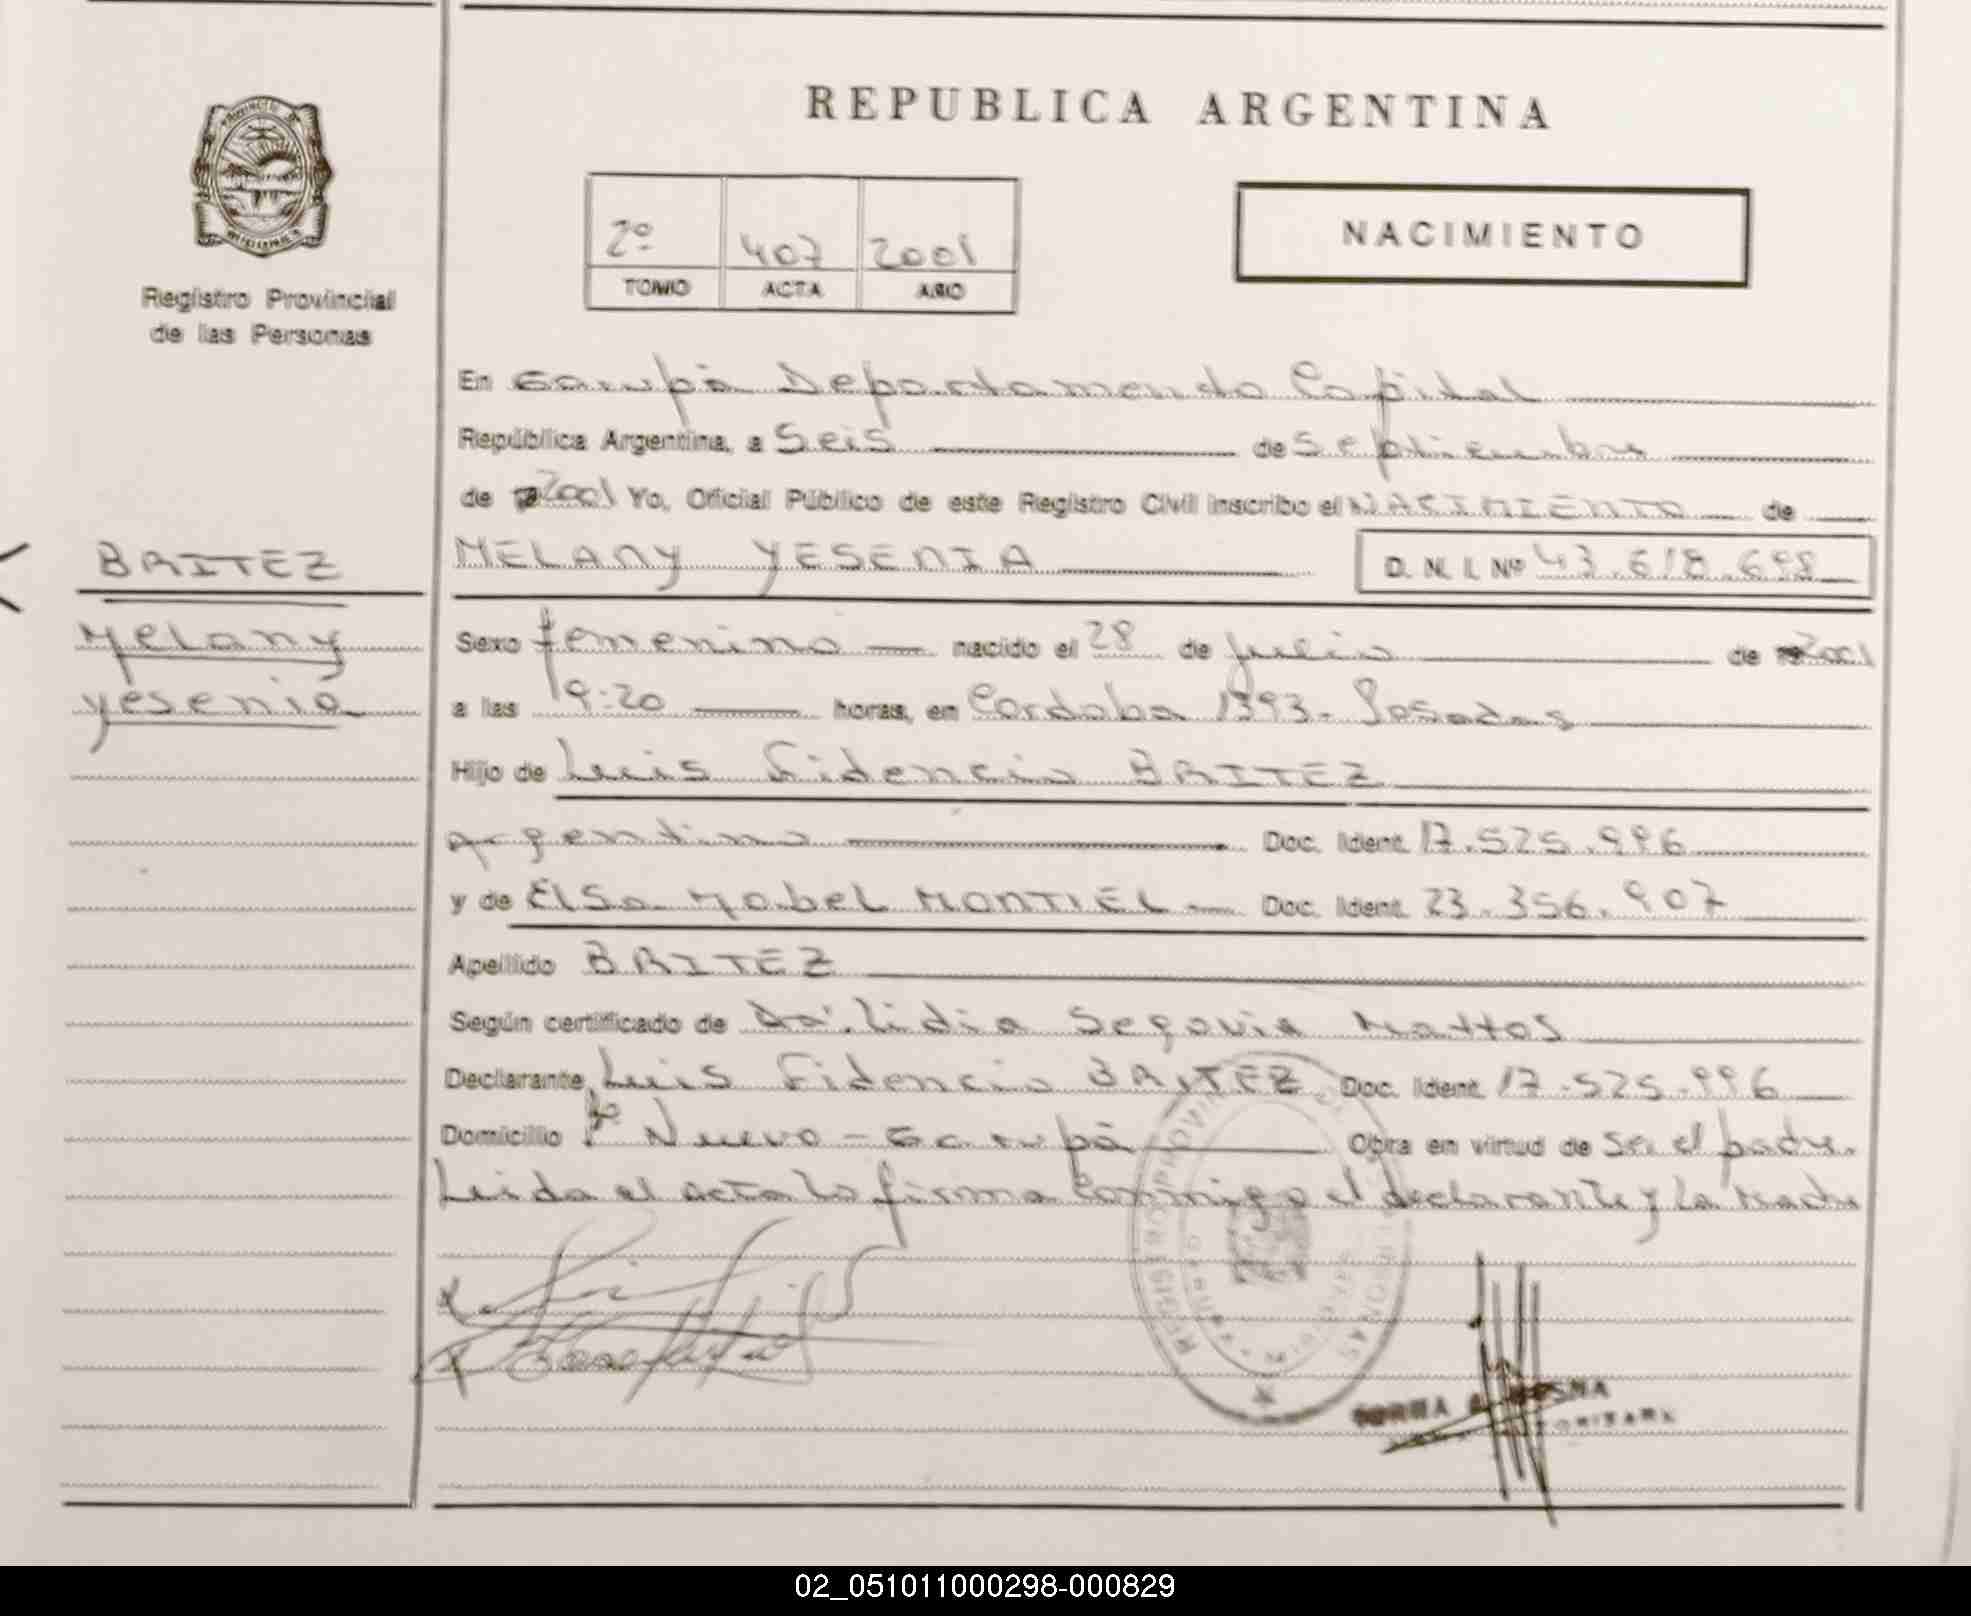 REPUBLICA ARGENTINA
2º 407 2001
TOMO ACTA AÑO
NACIMIENTO
Registro Provincial
de las Personas
En Garupá Departamento Capital
República Argentina, a Seis de Septiembre
de 2001 Yo, Oficial Público de este Registro Civil inscribo el NACIMIENTO de
BRITEZ
MELANY YESENIA D. N. I. Nº 43.618.698
Melany
Yesenia
Sexo femenino nacido el 28 de Julio de 2001
a las 9:20 horas, en Cordoba 1393. Posadas
Hijo de Luis Fidencio BRITEZ
argentino Doc. Ident. 17.525.996
y de Elsa Mabel MONTIEL Doc. Ident. 23.356.907
Apellido BRITEZ
Según certificado de Dra. Lidia Segovia Mattos
Declarante Luis Fidencio BRITEZ Doc. Ident. 17.525.996
Domicilio Nuevo - Garupá Obra en virtud de ser el padre.
Leida el acta la firma conmigo el declarante y la Madre
REGISTRO PROVINCIAL
02_051011000298-000829